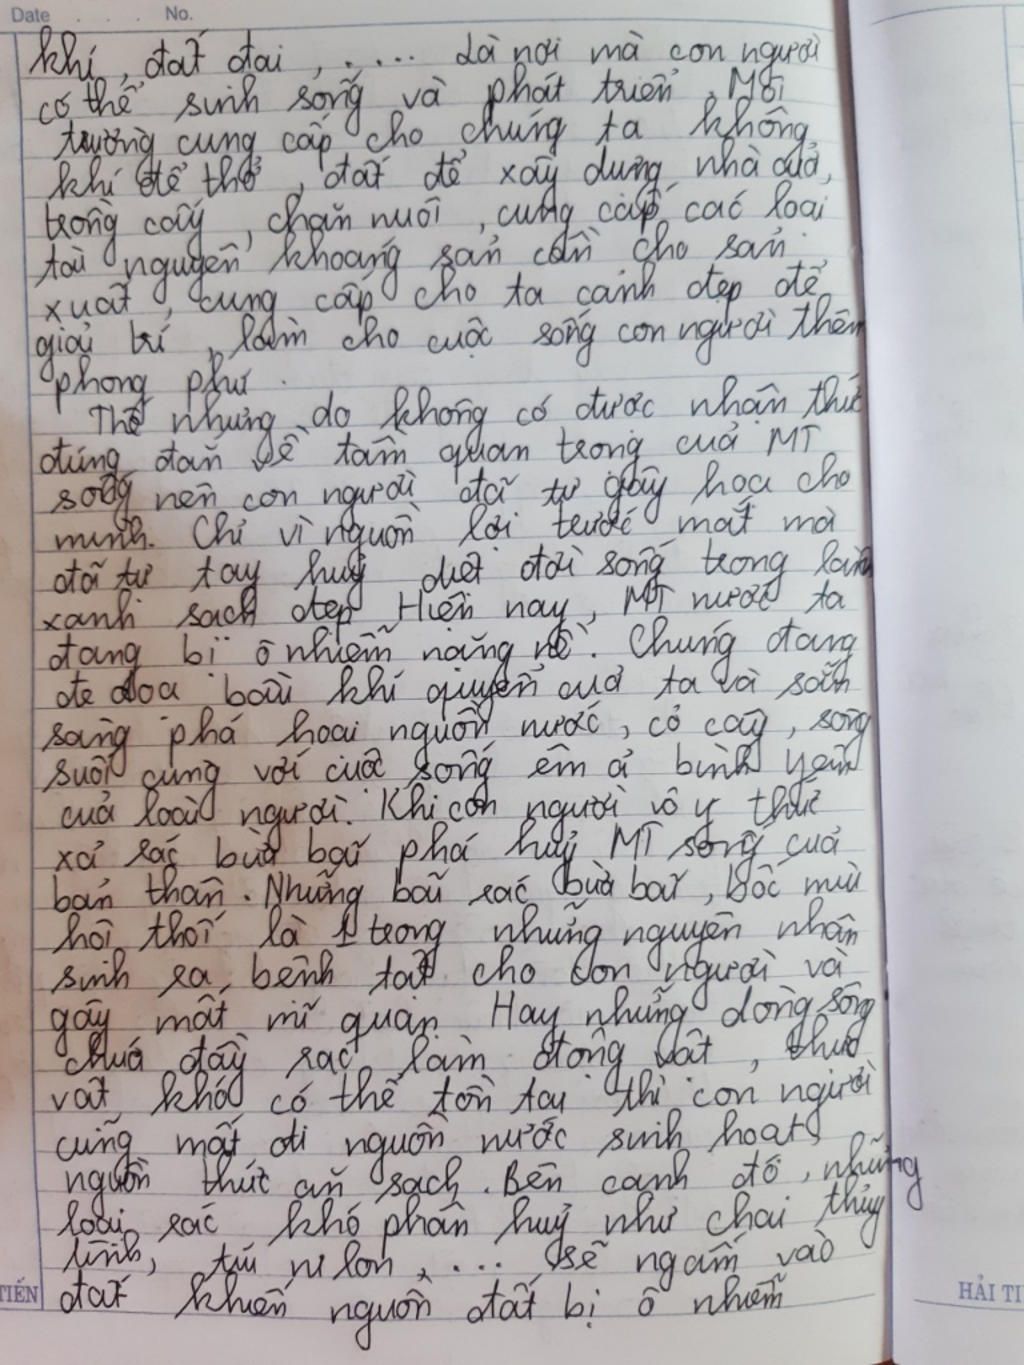 Date . . . No.
khí, đất đai, .... Là nơi mà con người
có thể sinh sống và phát triển. Môi
trường cung cấp cho chúng ta không
khí để thở, đất để xây dựng nhà cửa,
trồng cây, chăn nuôi, cung cấp các loại
tài nguyên khoáng sản cần cho sản
xuất, cung cấp cho ta cảnh đẹp để
giải trí, làm cho cuộc sống con người thêm
phong phú.
Thế nhưng do không có được nhận thức
đúng đắn về tầm quan trọng của MT
sống nên con người đã tự gây họa cho
mình. Chỉ vì nguồn lợi trước mắt mà
đã tự tay huỷ diệt đời sống trong lành
xanh sạch đẹp. Hiện nay, MT nước ta
đang bị ô nhiễm nặng nề. Chúng đang
đe dọa bầu khí quyển của ta và sẵn
sàng phá hoại nguồn nước, cỏ cây, sông
suối cùng với cuộc sống êm ả bình yên
của loài người. Khi con người vô ý thức
xả rác bừa bãi phá huỷ MT sống của
bản thân. Những bãi rác bừa bãi, bốc mùi
hôi thối là 1 trong những nguyên nhân
sinh ra bệnh tật cho con người và
gây mất mĩ quan. Hay những dòng sông
chứa đầy rác làm động vật, thực
vật khó có thể tồn tại thì con người
cũng mất đi nguồn nước sinh hoạt,
nguồn thức ăn sạch. Bên cạnh đó, những
loại rác khó phân huỷ như chai thủy
tinh, túi ni lon, ... sẽ ngấm vào
đất khiến nguồn đất bị ô nhiễm
TIẾN
HẢI TI